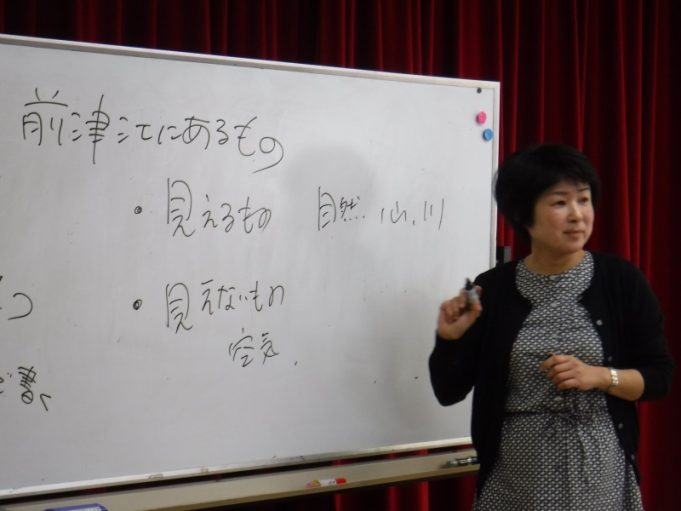 前津江にあるもの
・見えるもの 自然.山.川
・見えないもの
空気.